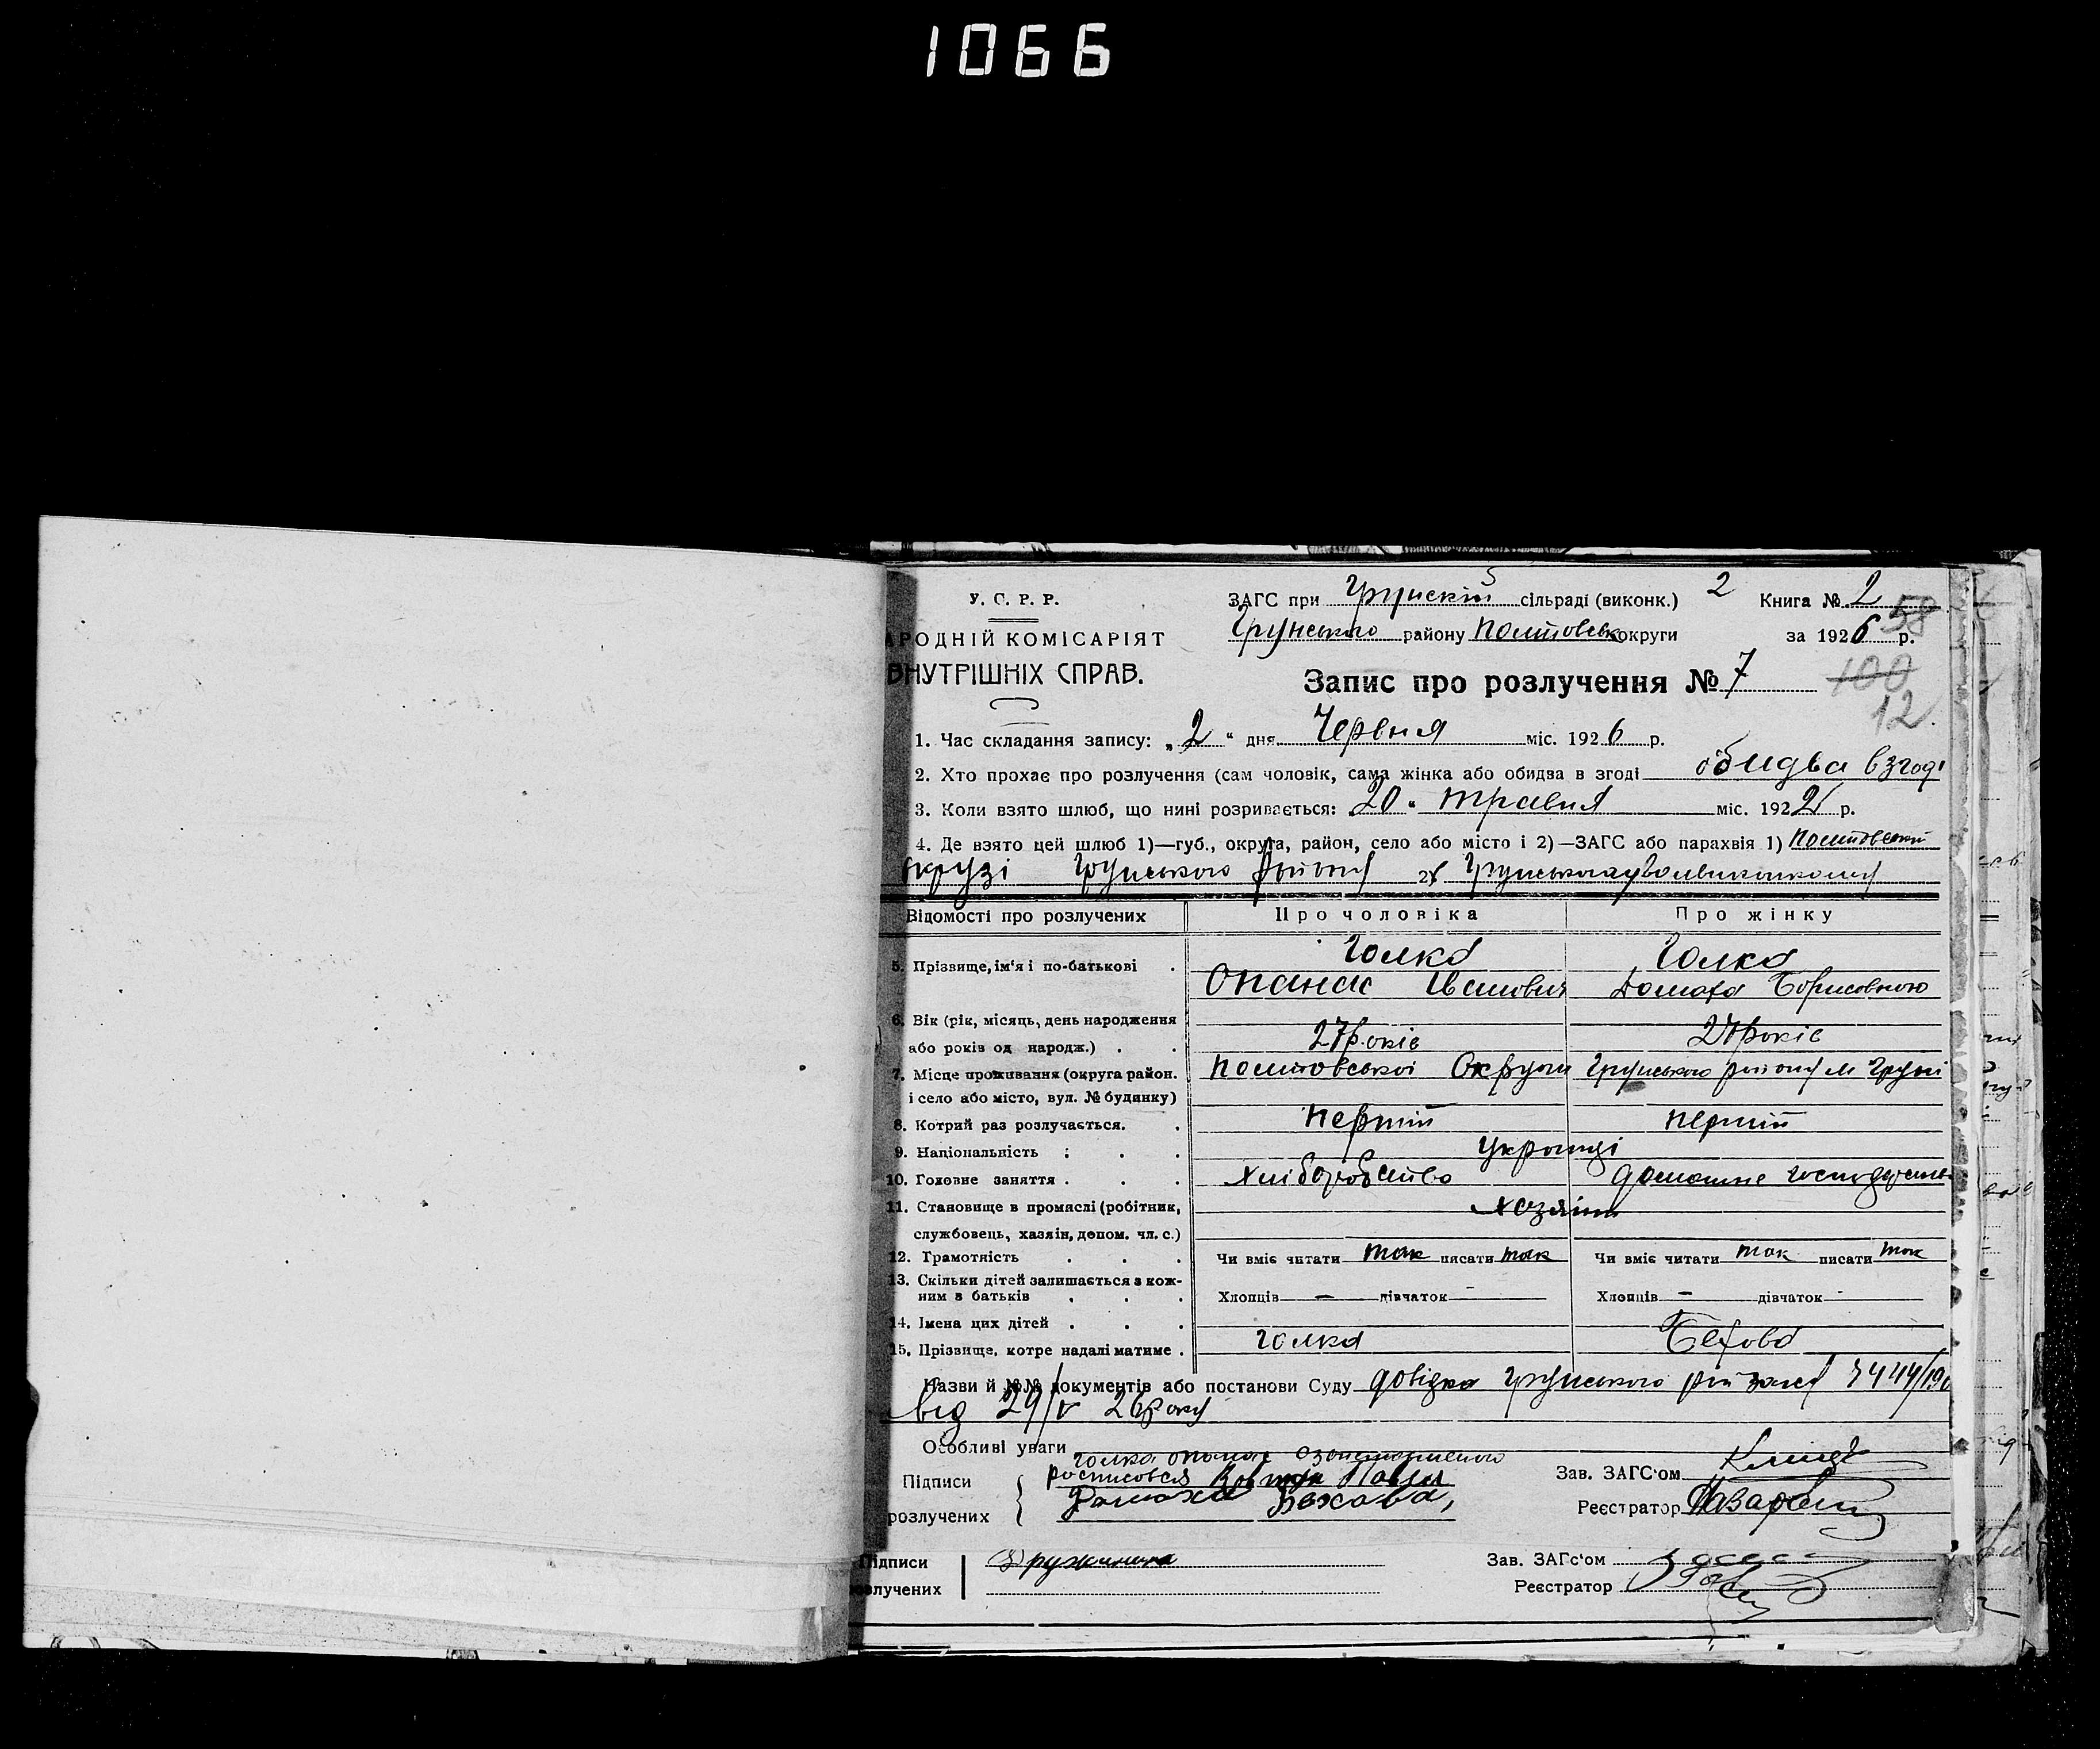 1066
У. С. Р. Р.
АРОДНІЙ КОМІСАРІЯТ
ВНУТРІШНІХ СПРАВ.
ЗАГС при Грунскій сільраді (виконк.) 2 Книга № 2
Грунського району Полтовськ округи за 1926 р. 58
Запис про розлучення № 7
100
12
1. Час складання запису: „2“ дня Червня міс. 1926 р.
2. Хто прохає про розлучення (сам чоловік, сама жінка або обидва в згоді обидва в згоді
3. Коли взято шлюб, що нині розривається: 20 „ травня міс. 192 р.
4. Де взято цей шлюб 1)—губ., округа, район, село або місто і 2)—ЗАГС або парахвія 1) Полтовській
окрузі Грунського району 2)
Відомості про розлучених
Про чоловіка
Про жінку
5. Прізвище, ім'я і по-батькові . Голка Голка
Опанас Іванович Домаха Борисовною
6. Вік (рік, місяць, день народження
або років од народж.) . . 27 років 27 років
7. Місце проживання (округа район. Полтовської Округи Грунського району м Груні
і село або місто, вул. № будинку)
8. Котрий раз розлучається. . перший перший
9. Національність : . . Українці
10. Головне заняття . . . Хліборобство домашне господарство
11. Становище в промислі (робітник, хазяїни
службовець, хазяїн, допом. чл. с.)
12. Грамотність . . . Чи вміє читати так писати так Чи вміє читати так писати так
13. Скільки дітей залишається з кож-
ним з батьків . . . Хлопців — дівчаток - Хлопців — дівчаток -
14. Імена цих дітей . . .
15. Прізвище, котре надалі матиме . Голка Бехова
Назви й №№ документів або постанови Суду довідка Грунського рай загсу
від 29/V 26 року
Особливі уваги
Підписи
розлучених
Голка Опанас
росписовся Павло
Домаха Бехова,
Зав. ЗАГС'ом
Реєстратор
Підписи Дружинина
озлучених
Зав. ЗАГс'ом
Реєстратор